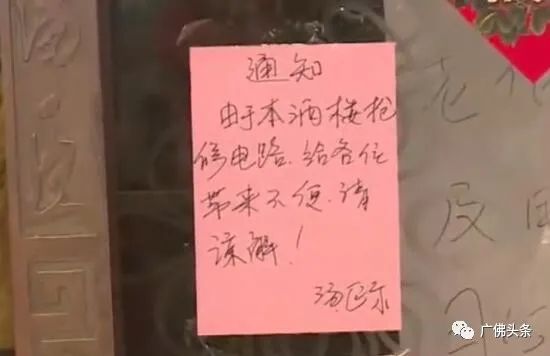 通知
由于本酒楼抢
修电路.给各位
带来不便.请
谅解！
老
及
广佛头条